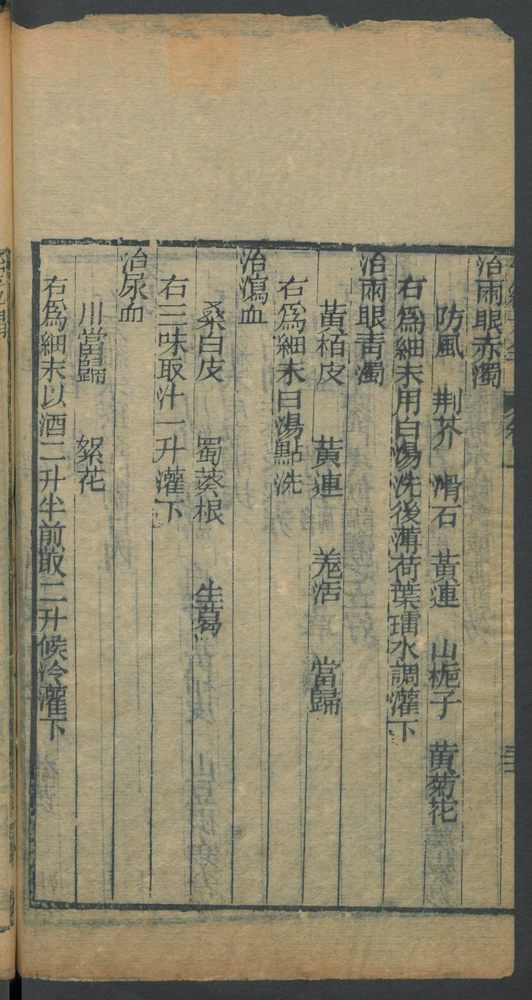 治兩眼赤濁
防風 荆芥 滑石 黃連 山梔子 黄菊花
右爲細末用白湯洗後薄荷葉擂水調灌下
治兩眼青濁
黃栢皮 黄連 羗活 當歸
右爲細末白湯點洗
治瀉血
桑白皮 蜀葵根 生葛
右三味取汁一升灌下
治尿血
川當歸 絮花
右爲細末以酒二升半煎取二升候冷灌下